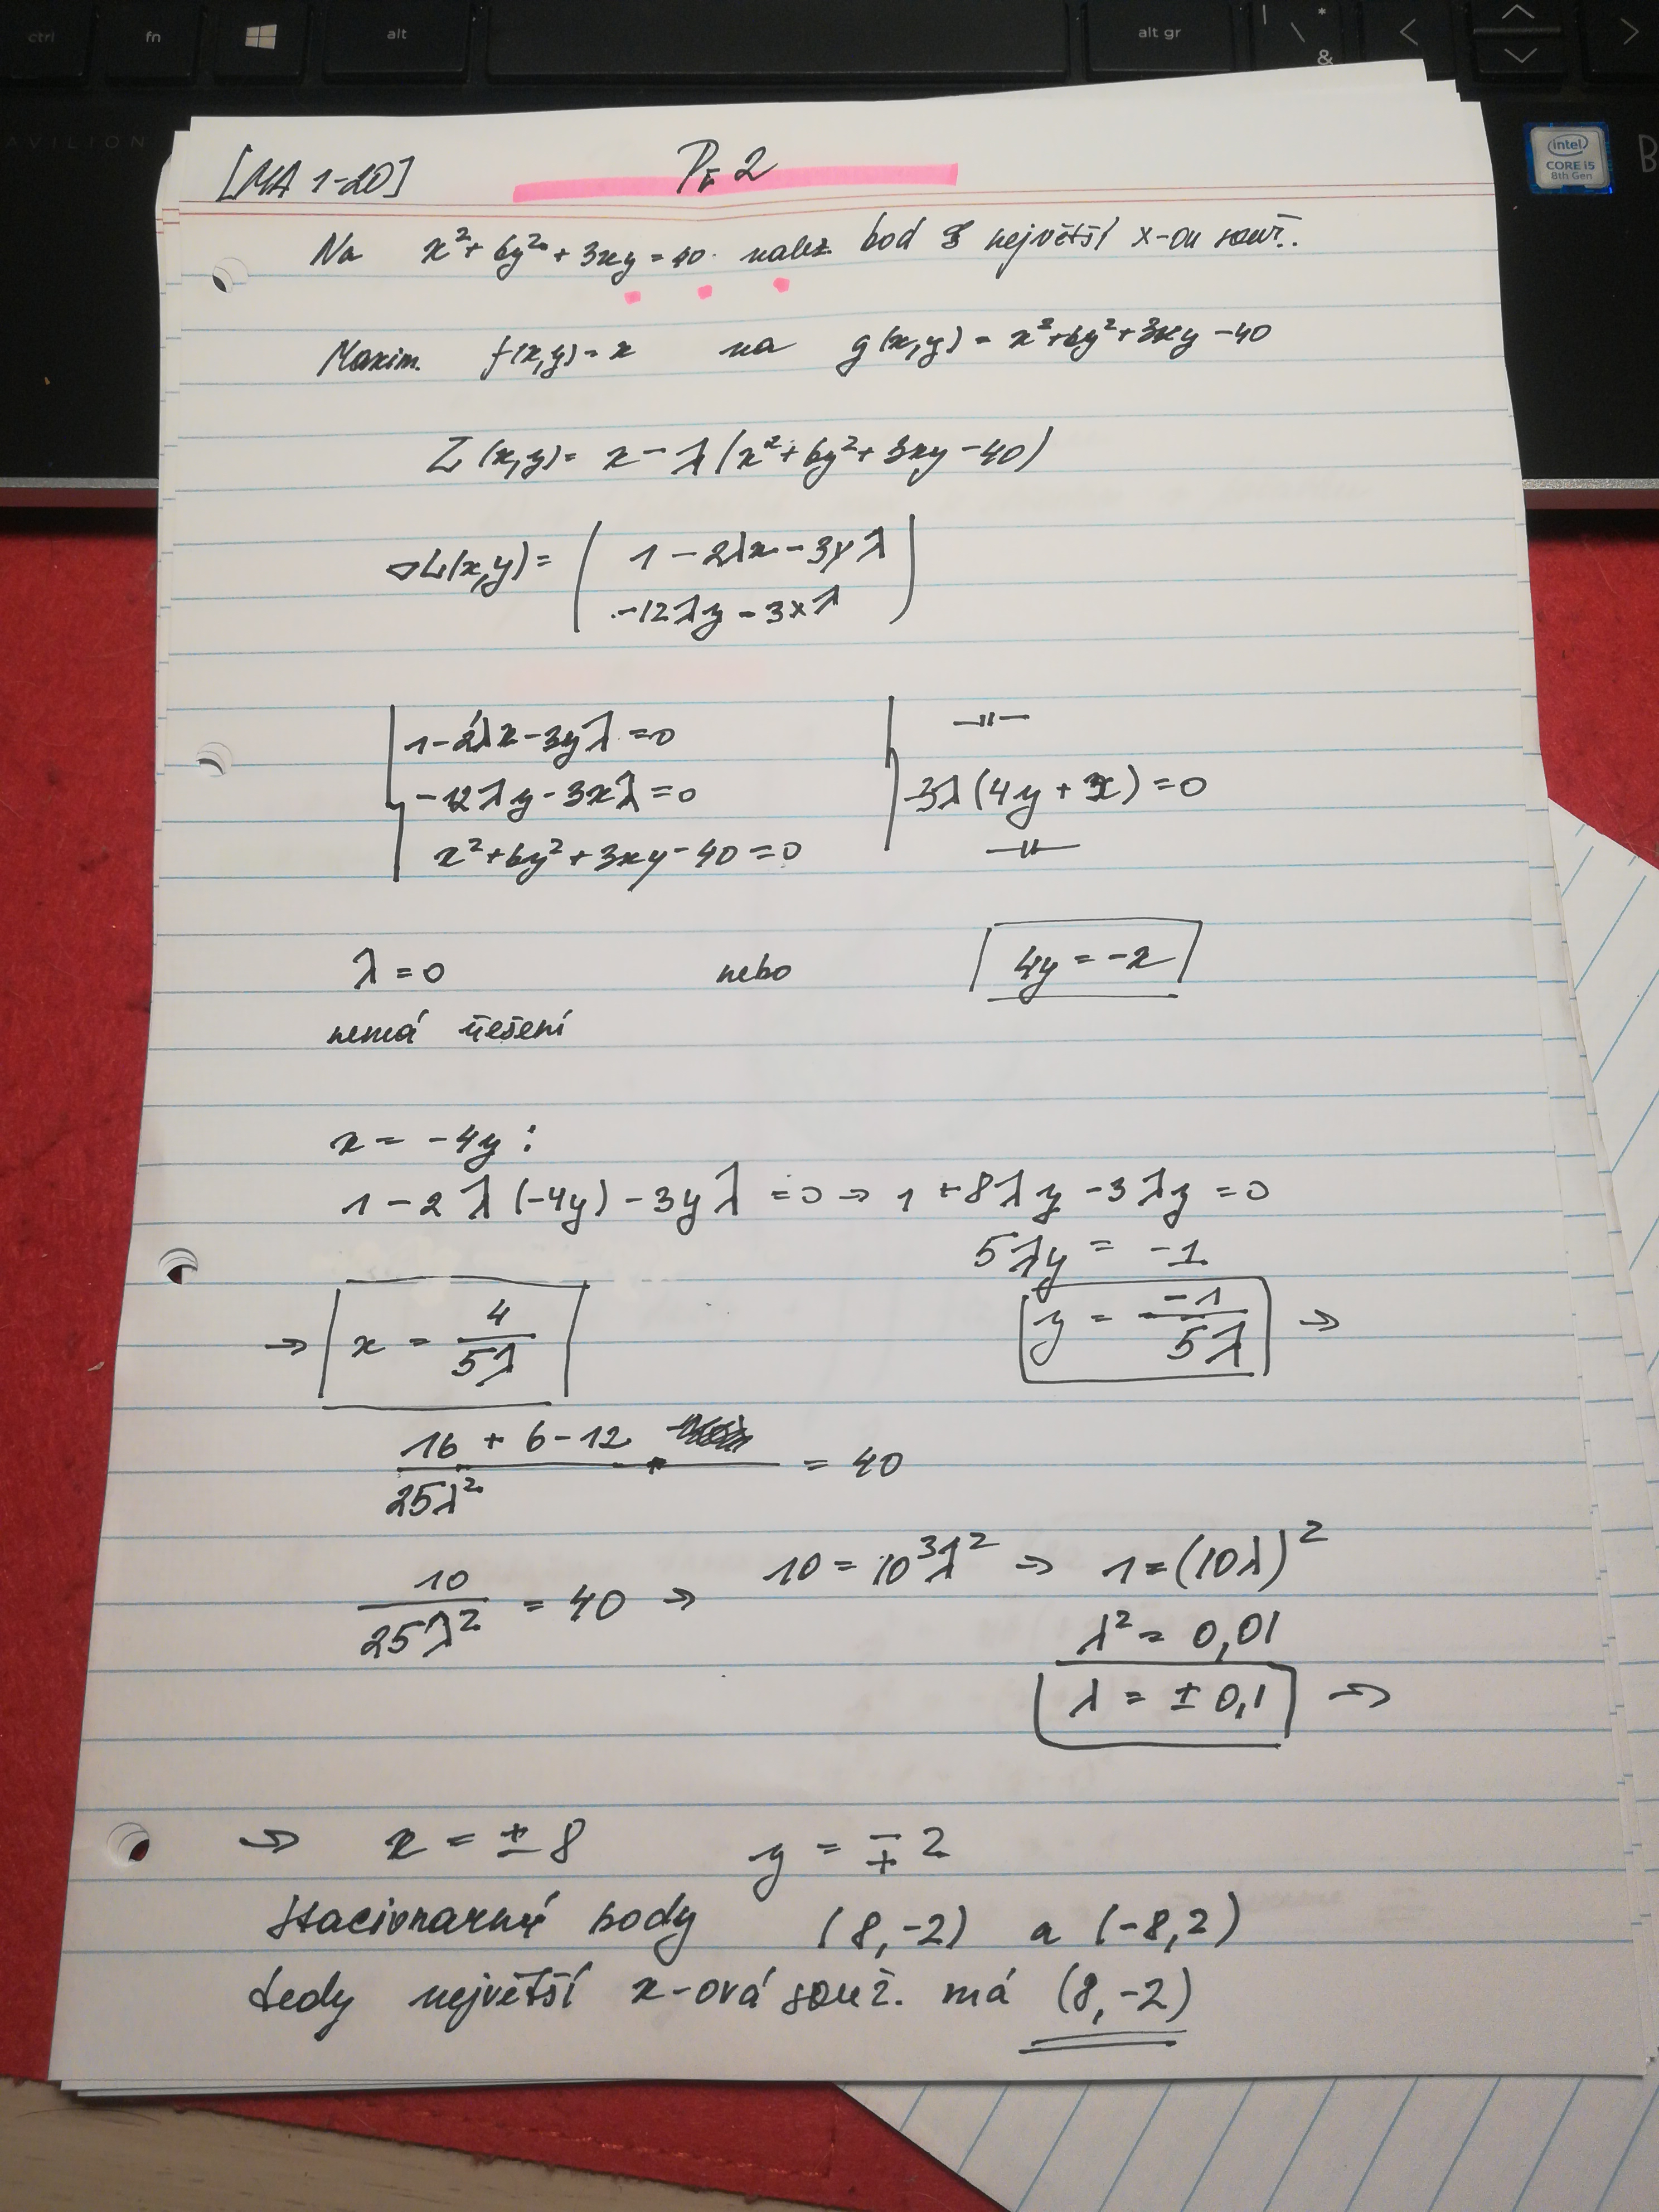 ctrl fn alt alt gr | \ * & < >
PAVILION
intel CORE i5 8th Gen
B
[MA 1-20] Př 2
Na x² + 6y² + 3xy = 40 nalez bod s největší x-ou souř.
Maxim. f(x,y) = x na g(x,y) = x² + 6y² + 3xy - 40
L(x,y) = x - λ(x² + 6y² + 3xy - 40)
∇L(x,y) = ( 1 - 2λx - 3yλ
-12λy - 3xλ )
1 - 2λx - 3yλ = 0 —"—
-12λy - 3xλ = 0 -3λ(4y + x) = 0
x² + 6y² + 3xy - 40 = 0 —"—
λ = 0 nebo 4y = -x
nemá řešení
x = -4y :
1 - 2λ(-4y) - 3yλ = 0 → 1 + 8λy - 3λy = 0
5λy = -1
→ x = 4/5λ y = -1/5λ →
16 + 6 - 12 / 25λ² = 40
10/25λ² = 40 → 10 = 10³λ² → 1 = (10λ)²
λ² = 0,01
λ = ± 0,1 →
→ x = ± 8 y = ∓ 2
Stacionarní body (8,-2) a (-8,2)
tedy největší x-ová souř. má (8,-2)